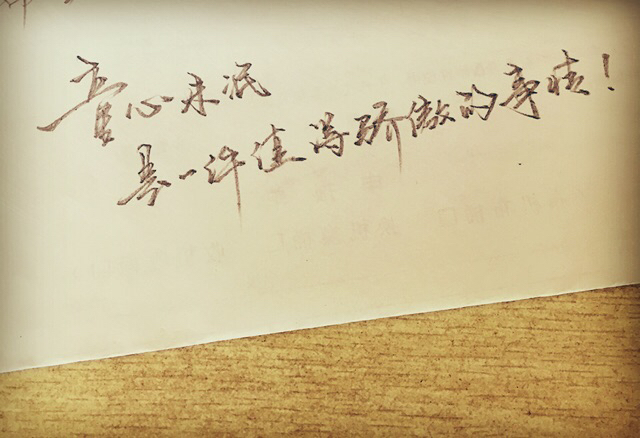 童心未泯
是一件值得骄傲的事情！